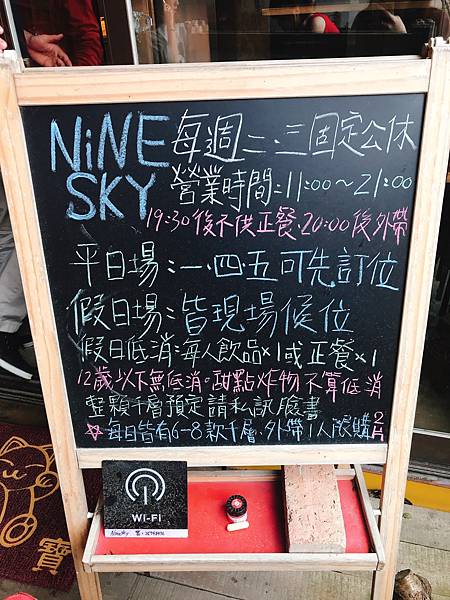 NiNE SKY
每週二、三固定公休
營業時間:11:00~21:00
19:30後不供正餐、20:00後外帶
平日場:一、四、五可先訂位
假日場:皆現場候位
假日低消:每人飲品×1或正餐×1
12歲以下無低消。甜點炸物不算低消
整顆千層預定請私訊臉書
☆每日皆有6-8款千層、外帶1人限購2片
WI-FI
NineSky
寶